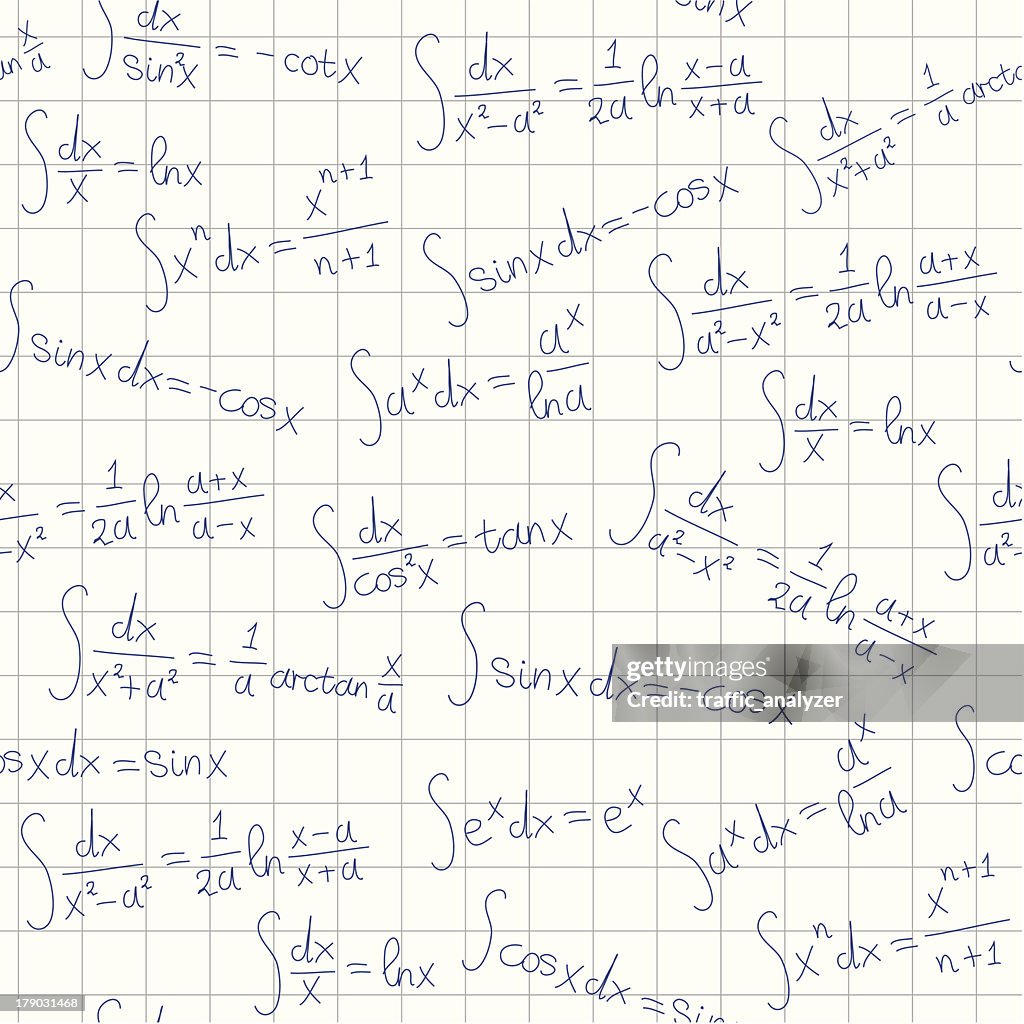 sinx
x/a
∫ dx/sin²x = -cotx
∫ dx/x²-a² = 1/2a ln x-a/x+a
∫ dx/x²+a² = 1/a
∫ dx/x = lnx
∫ xⁿdx = xⁿ⁺¹/n+1
∫ sinxdx=-cosx
∫ dx/a²-x² = 1/2a ln a+x/a-x
∫ sinxdx=-cosx
∫ aˣdx = aˣ/lna
∫ dx/x = lnx
= 1/2a ln a+x/a-x
∫ dx/cos²x = tanx
∫ dx/a²-x² = 1/2a ln a+x/a-x
∫ dx/x²+a² = 1/a arctan x/a
∫ sinxdx=-cosx
gettyimages®
traffic_analyzer
xdx =sinx
∫ eˣdx = eˣ
∫ aˣdx = aˣ/lna
∫ dx/x²-a² = 1/2a ln x-a/x+a
∫ dx/x = lnx
∫ cosxdx =
∫ xⁿdx = xⁿ⁺¹/n+1
179031468